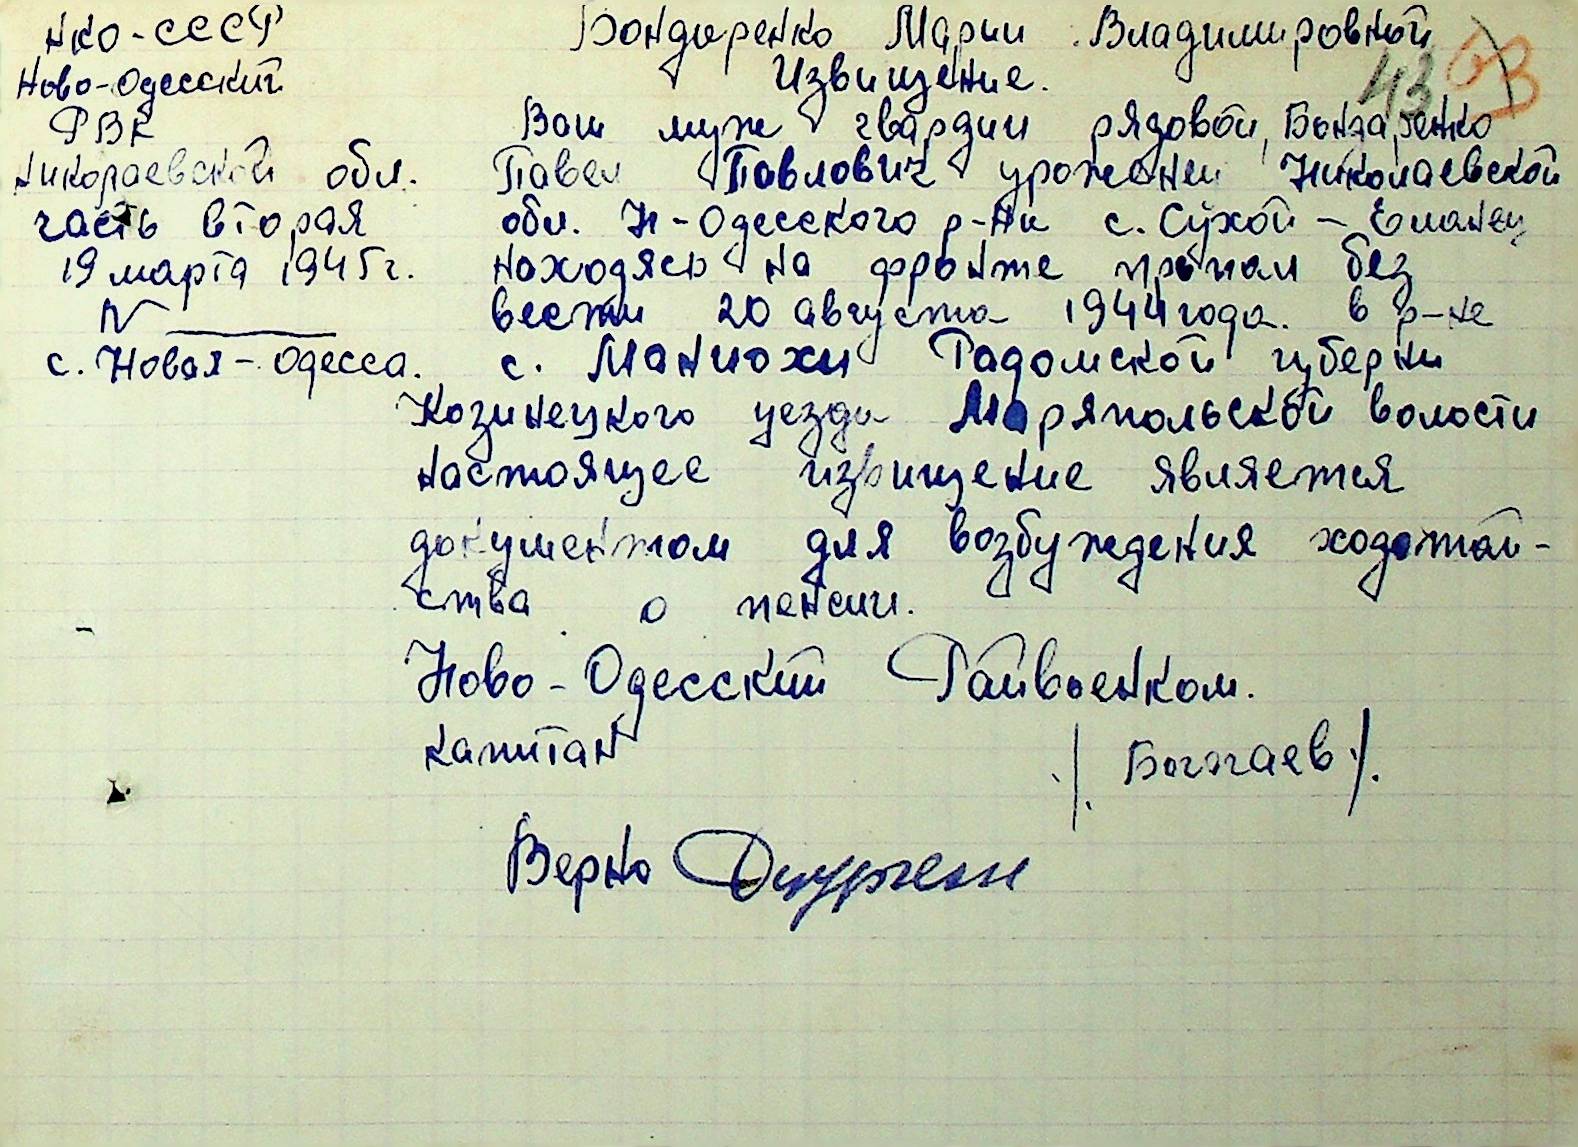 НКО-СССР
Ново-Одесский
РВК
Николаевской обл.
часть вторая
19 марта 1945 г.
N
с. Новая-Одесса.
Бондаренко Марии Владимировной
Извищение.
43 53
Ваш муж гвардии рядовой, Бондаренко
Павел Павлович уроженец Николаевской
обл. Н-Одесского р-на с. Сухой-Еланец
находясь на фронте пропал без
вести 20 августа 1944 года. в р-не
с. Маниохи Радомской губерни
Козинецкого уезда Маряпольской волости
настоящее извищение является
документом для возбуждения ходатай-
ства о пенсии.
Ново-Одесский Райвоенком.
капитан
/ Богогаев /.
Верно